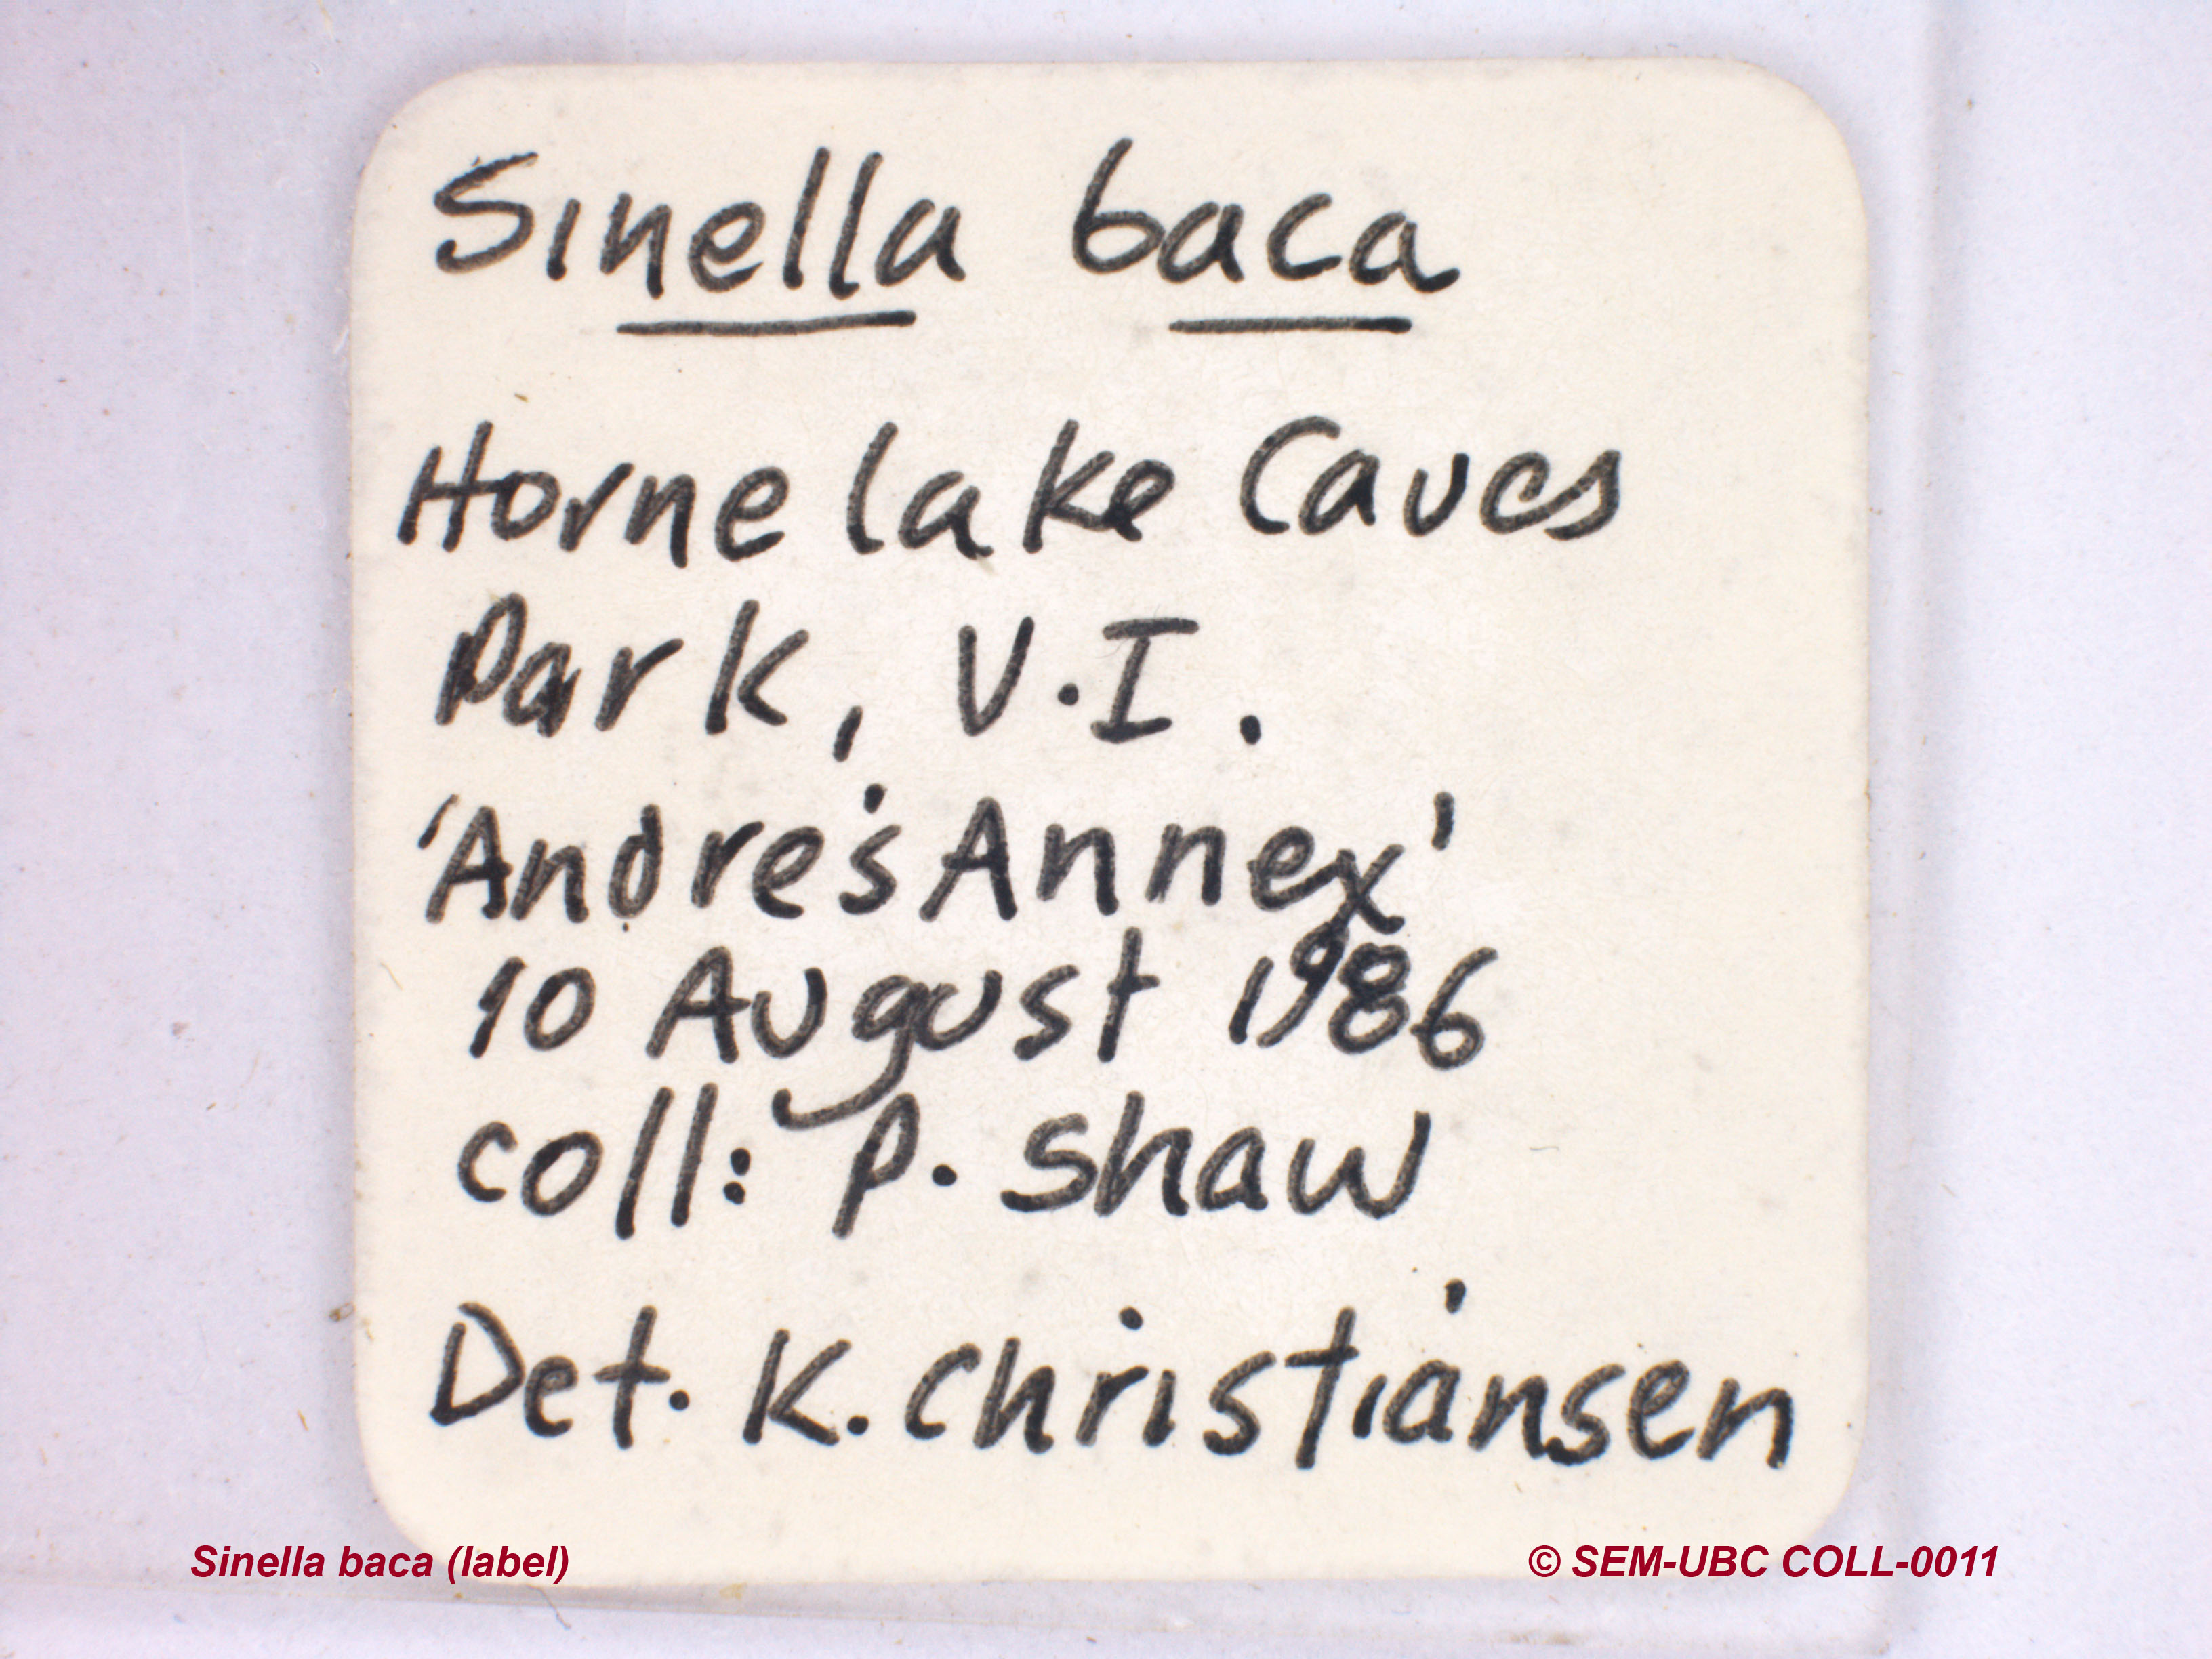 Sinella baca
Horne lake Caves
Park, V.I.
'Andre's Annex'
10 August 1986
coll: P. Shaw
Det. K. Christiansen
Sinella baca (label)
© SEM-UBC COLL-0011